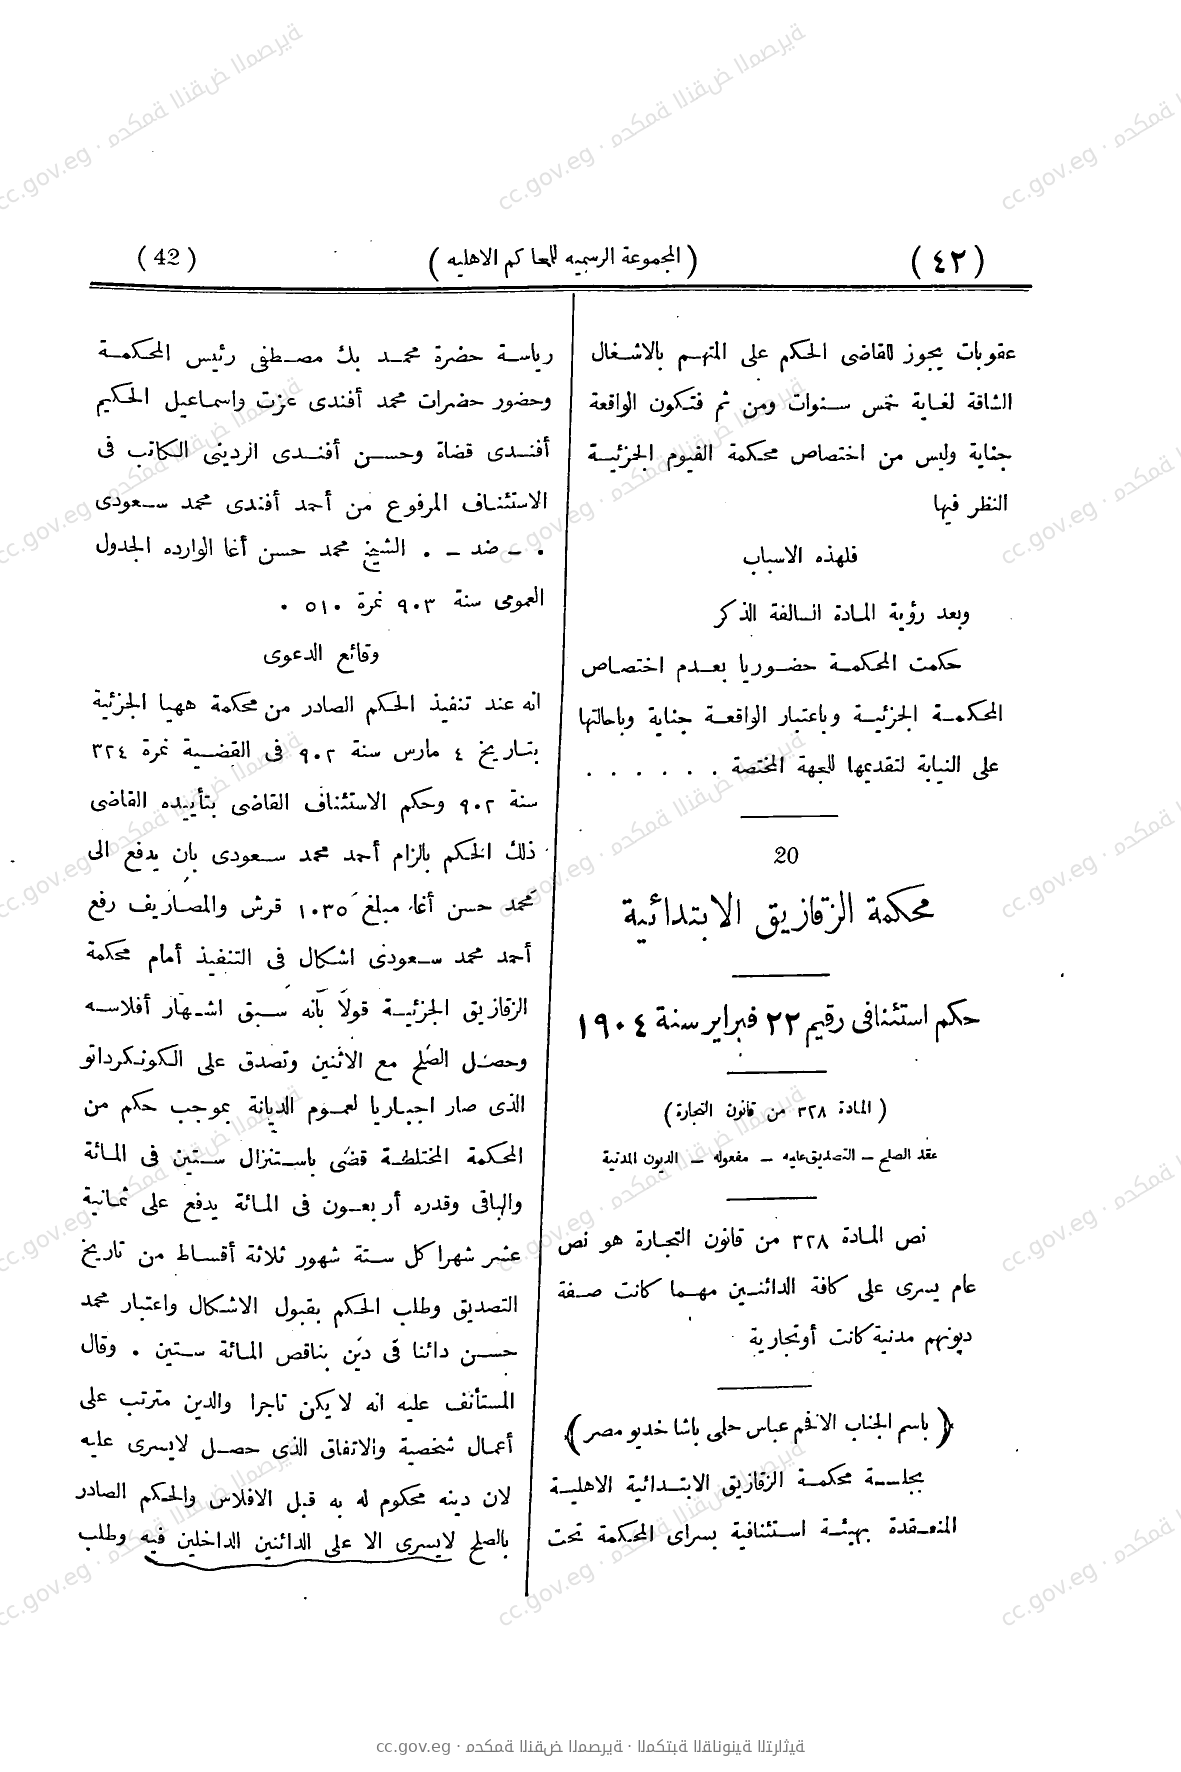 ( ٤٢ )
( المجموعة الرسميه للمحاكم الاهليه )
( 42 )
عقوبات يجوز للقاضى الحكم على المتهم بالاشغال
الشاقة لغاية خمس سنوات ومن ثم فتكون الواقعة
جناية وليس من اختصاص محكمة الفيوم الجزئية
النظر فيها
فلهذه الاسباب
وبعد رؤية المادة السالفة الذكر
حكمت المحكمة حضوريا بعدم اختصاص
المحكمة الجزئية وباعتبار الواقعة جناية وباحالتها
على النيابة لتقديمها للجهة المختصة . . . . . .
20
محكمة الزقازيق الابتدائية
حكم استئنافى رقيم ٢٢ فبراير سنة ١٩٠٤
( المادة ٣٢٨ من قانون التجارة )
عقد الصلح – التصديق عليه – مفعوله – الديون المدنية
نص المادة ٣٢٨ من قانون التجارة هو نص
عام يسرى على كافة الدائنين مهما كانت صفة
ديونهم مدنية كانت أو تجارية
( باسم الجناب الافخم عباس حلمى باشا خديو مصر )
بجلسة محكمة الزقازيق الابتدائية الاهلية
المنعقدة بهيئة استئنافية بسراى المحكمة تحت
رياسة حضرة محمد بك مصطفى رئيس المحكمة
وحضور حضرات محمد أفندى عزت واسماعيل الحكيم
أفندى قضاة وحسن أفندى الردينى الكاتب فى
الاستئناف المرفوع من أحمد أفندى محمد سعودى
. – ضد – . الشيخ محمد حسن أغا الوارده الجدول
العمومى سنة ٩٠٣ نمرة ٥١٠ .
وقائع الدعوى
انه عند تنفيذ الحكم الصادر من محكمة ههيا الجزئية
بتاريخ ٤ مارس سنة ٩٠٢ فى القضية نمرة ٣٢٤
سنة ٩٠٢ وحكم الاستئناف القاضى بتأييده القاضى
ذلك الحكم بالزام أحمد محمد سعودى بان يدفع الى
محمد حسن أغا مبلغ ١٠٣٥ قرش والمصاريف رفع
أحمد محمد سعودى اشكال فى التنفيذ أمام محكمة
الزقازيق الجزئية قولا بأنه سبق اشهار أفلاسه
وحصل الصلح مع الاثنين وتصدق على الكونكرداتو
الذى صار اجباريا لعموم الديانة بموجب حكم من
المحكمة المختلطة قضى باستنزال ستين فى المائة
والباقى وقدره أربعون فى المائة يدفع على ثمانية
عشر شهرا كل ستة شهور ثلاثة أقساط من تاريخ
التصديق وطلب الحكم بقبول الاشكال واعتبار محمد
حسن دائنا فى دين بناقص المائة ستين . وقال
المستأنف عليه انه لا يكن تاجرا والدين مترتب على
أعمال شخصية والاتفاق الذى حصل لايسرى عليه
لان دينه محكوم له به قبل الافلاس والحكم الصادر
بالصلح لايسرى الا على الدائنين الداخلين فيه وطلب
cc.gov.eg · محكمة النقض المصرية · المكتبة القانونية التراثية